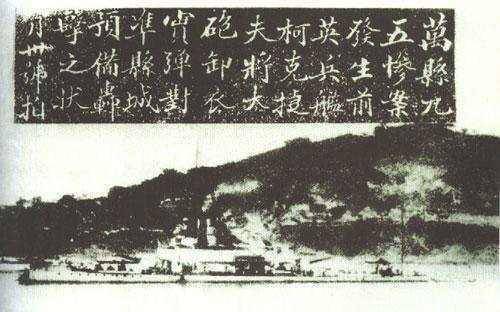 萬縣九
五慘案
發生前
英兵艦
柯克捷
夫將大
砲卸衣
實彈對
准縣城
預備轟
擊之狀
月卅號拍